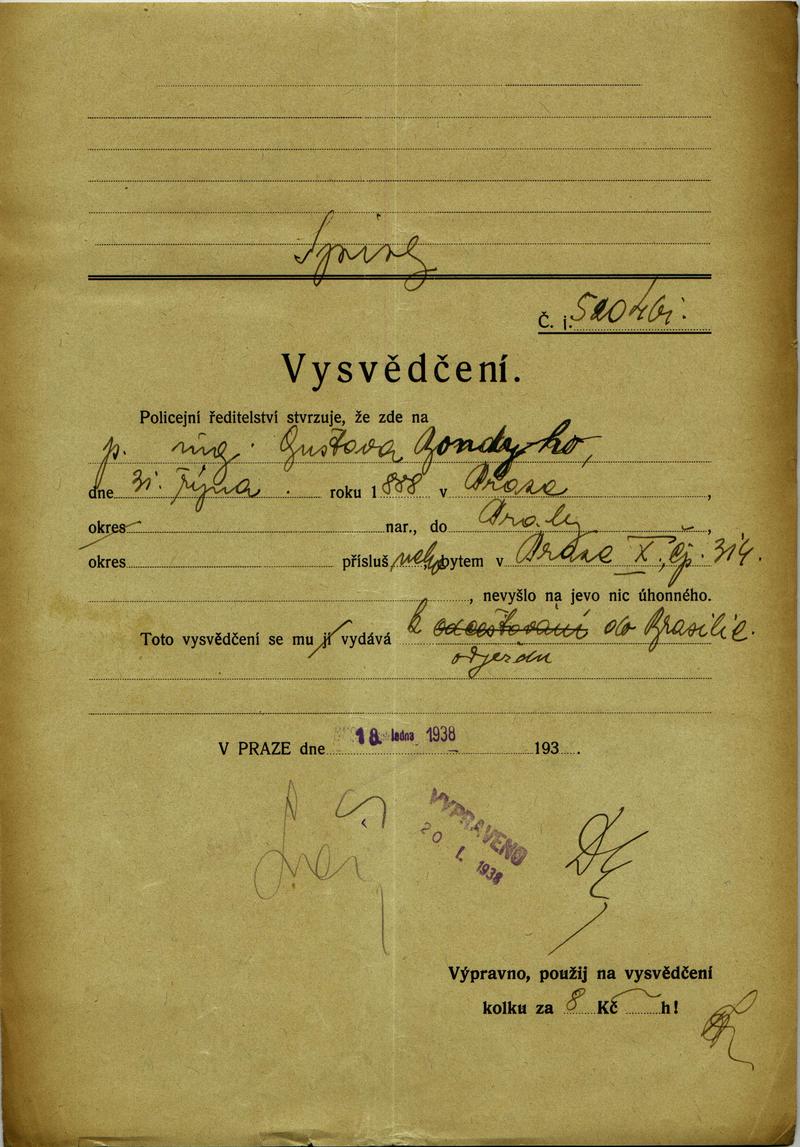 Č. j. 520
Vysvědčení.
Policejní ředitelství stvrzuje, že zde na
p. ing. Gustava Bondyho,
dne 31. října roku 1888 v Praze,
okres nar., do Prahy,
okres přísluš bytem v Praze X., čp. 314.
, nevyšlo na jevo nic úhonného.
Toto vysvědčení se mu jí vydává k odcestování do Brasilie.
odjezdu
V PRAZE dne 18. ledna 1938 193 .
VYPRAVENO
20 I. 1938
Výpravno, použij na vysvědčení
kolku za 8 Kč h!